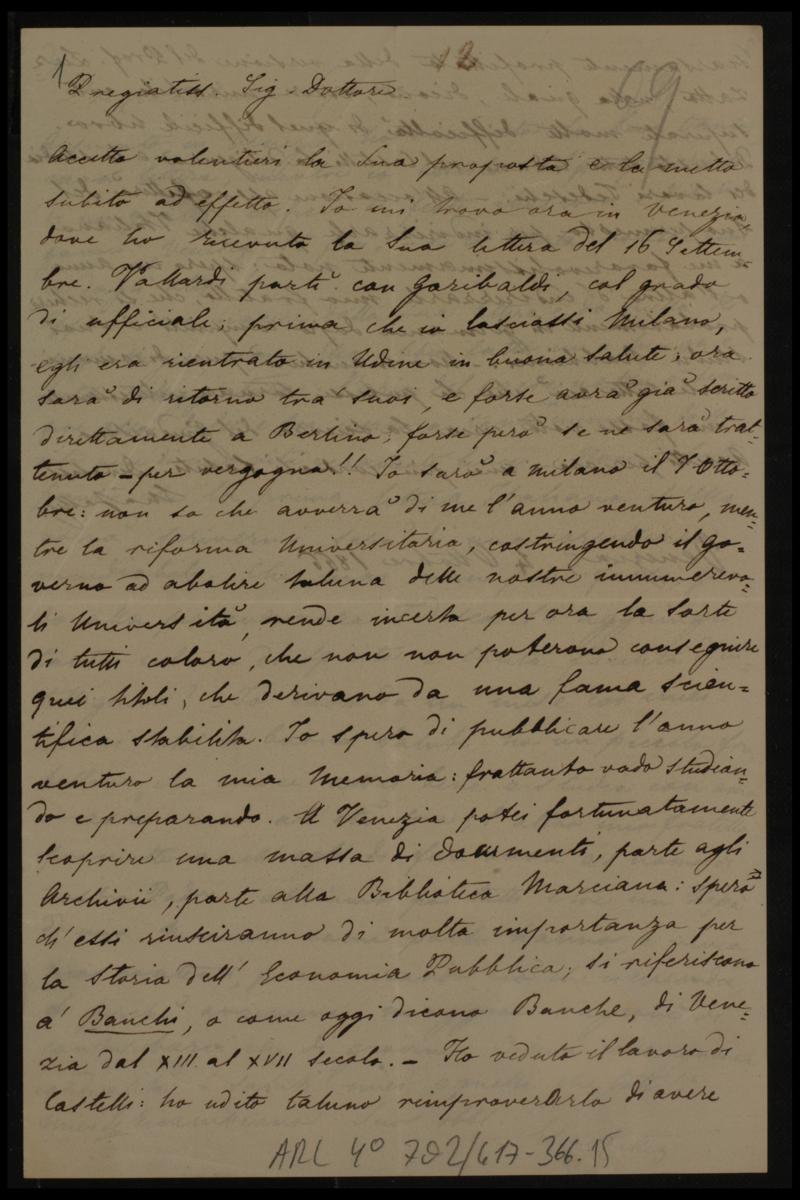 12
69
1 Pregiatiss. Sig. Dottore
Accetto volentieri la Sua proposta e la metto
subito ad effetto. Io mi trovo ora in Venezia,
dove ho ricevuto la Sua lettera del 16 Settem=
bre. Vallardi partì con Garibaldi, col grado
di ufficiale; prima che io lasciassi Milano,
egli era rientrato in Udine in buona salute; ora
sarà di ritorno tra' suoi, e forse avrà già scritto
direttamente a Berlino; forse però se ne sarà trat=
tenuto – per vergogna!! Io sarò a Milano il 7 Otto=
bre: non so che avverrà di me l'anno venturo, men=
tre la riforma Universitaria, costringendo il go=
verno ad abolire taluna delle nostre innumerevo=
li Università, rende incerta per ora la sorte
di tutti coloro, che non non poterono conseguire
quei titoli, che derivano da una fama scien=
tifica stabilita. Io spero di pubblicare l'anno
venturo la mia Memoria: frattanto vado studian=
do e preparando. A Venezia potei fortunatamente
scoprire una massa di documenti, parte agli
Archivii, parte alla Biblioteca Marciana: spero
ch'essi riusciranno di molta importanza per
la storia dell' Economia Pubblica; si riferiscono
a' Banchi, o come oggi dicono Banche, di Vene=
zia dal XIII al XVII secolo. – Ho veduto il lavoro di
Castelli: ho udito taluno rimproverarlo di avere
ARL 4° 792/617-366.15